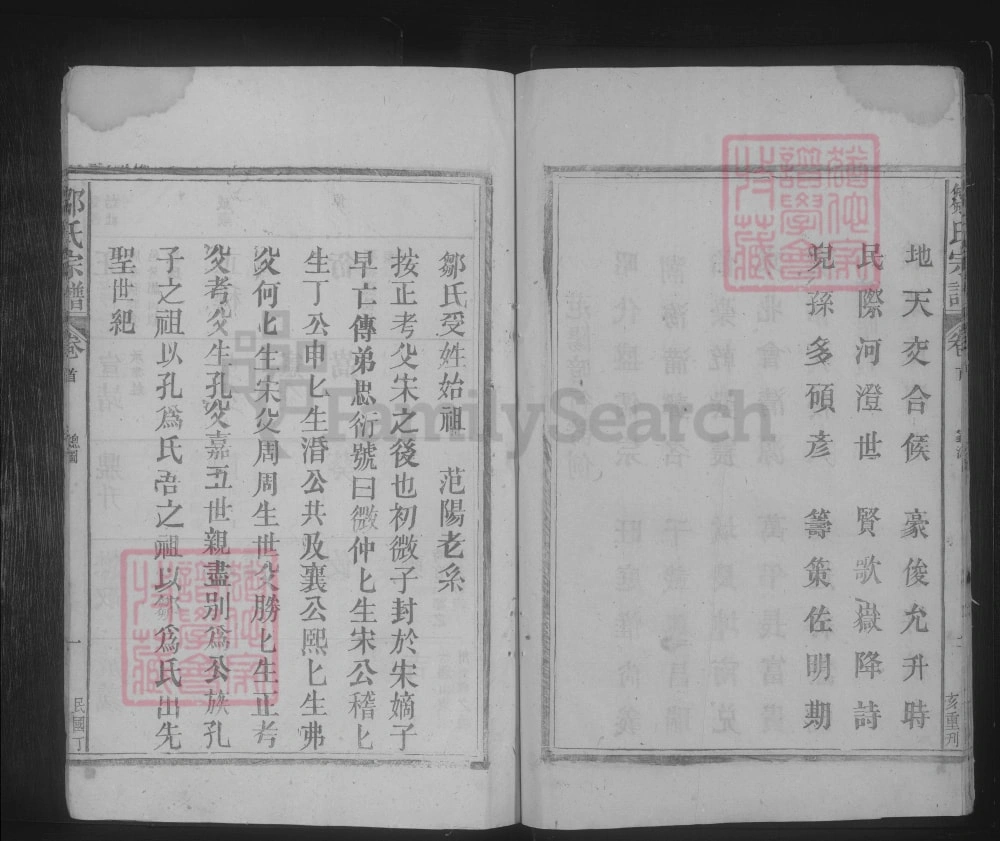 地天交合候 豪俊允升時
民際河澄世 賢歌嶽降詩
兒孫多碩彥 籌策佐明期
亥重刋
鄒氏宗譜
卷首
一
民國丁
鄒氏受姓始祖 范陽老系
按正考父宋之後也初微子封於宋嫡子
早亡傳弟思衍號曰微仲匕生宋公稽匕
生丁公申匕生湣公共及襄公熙匕生弗
父何匕生宋父周周生世父勝匕生正考
父考父生孔父嘉五世親盡别爲公族孔
子之祖以孔爲氏吾之祖以鄒爲氏出先
聖世紀
FamilySearch